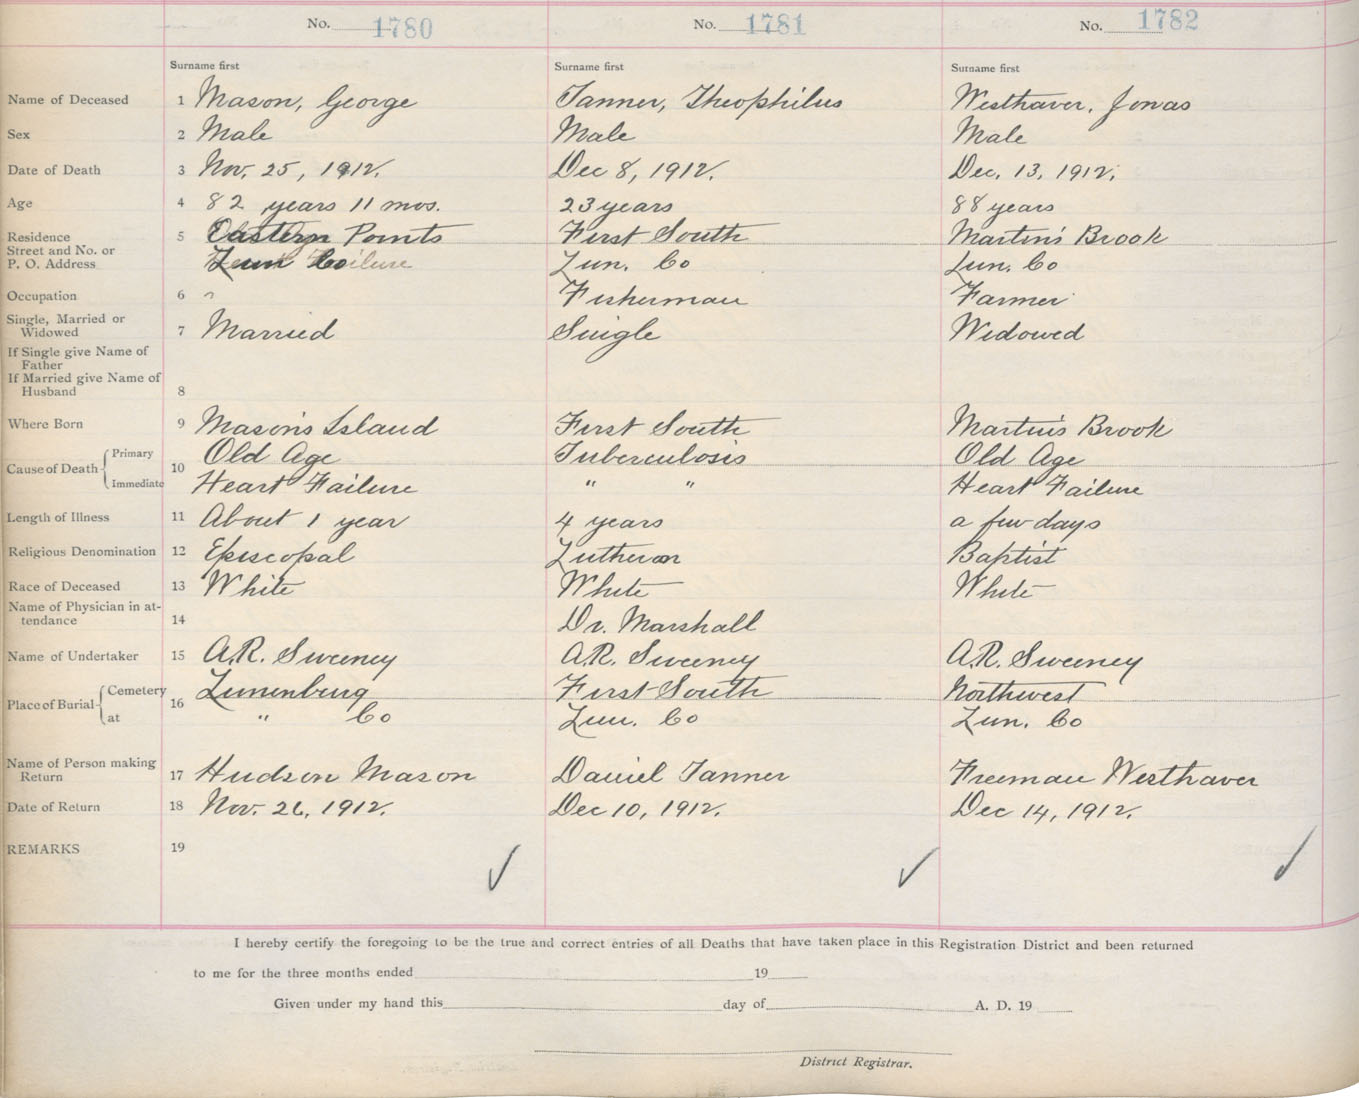 No. 1780 No. 1781 No. 1782
Surname first Surname first Surname first
Name of Deceased 1 Mason, George Tanner, Theophilus Westhaver, Jonas
Sex 2 Male Male Male
Date of Death 3 Nov. 25, 1912. Dec 8, 1912. Dec. 13, 1912.
Age 4 82 years 11 mos. 23 years 88 years
Residence 5 Eastern Points First South Martin's Brook
Street and No. or
P. O. Address Lun Co Lun. Co Lun. Co
Occupation 6 Fisherman Farmer
Single, Married or
Widowed 7 Married Single Widowed
If Single give Name of
Father
If Married give Name of
Husband 8
Where Born 9 Mason's Island First South Martin's Brook
Cause of Death Primary 10 Old Age Tuberculosis Old Age
Immediate Heart Failure " " Heart Failure
Length of Illness 11 About 1 year 4 years a few days
Religious Denomination 12 Episcopal Lutheran Baptist
Race of Deceased 13 White White White
Name of Physician in at-
tendance 14 Dr. Marshall
Name of Undertaker 15 A.R. Sweeney A.R. Sweeney A.R. Sweeney
Place of Burial Cemetery 16 Lunenburg First South Northwest
at " Co Lun. Co Lun. Co
Name of Person making
Return 17 Hudson Mason Daniel Tanner Freeman Westhaver
Date of Return 18 Nov. 26, 1912. Dec 10, 1912. Dec 14, 1912.
REMARKS 19
I hereby certify the foregoing to be the true and correct entries of all Deaths that have taken place in this Registration District and been returned
to me for the three months ended 19
Given under my hand this day of A. D. 19
District Registrar.